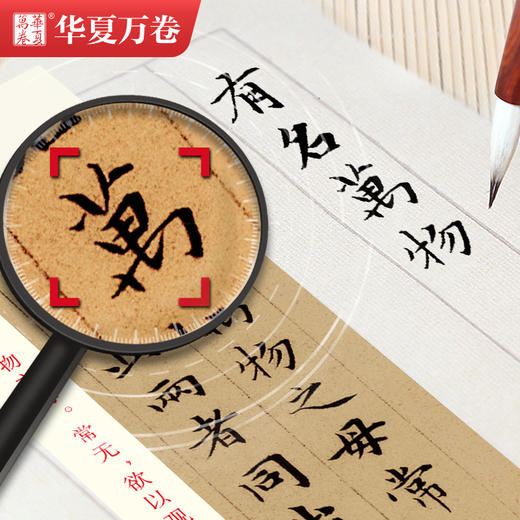 華夏
萬卷
®
华夏万卷
萬
有名萬物
萬物之母常
此兩者同
。常无，欲以观
物